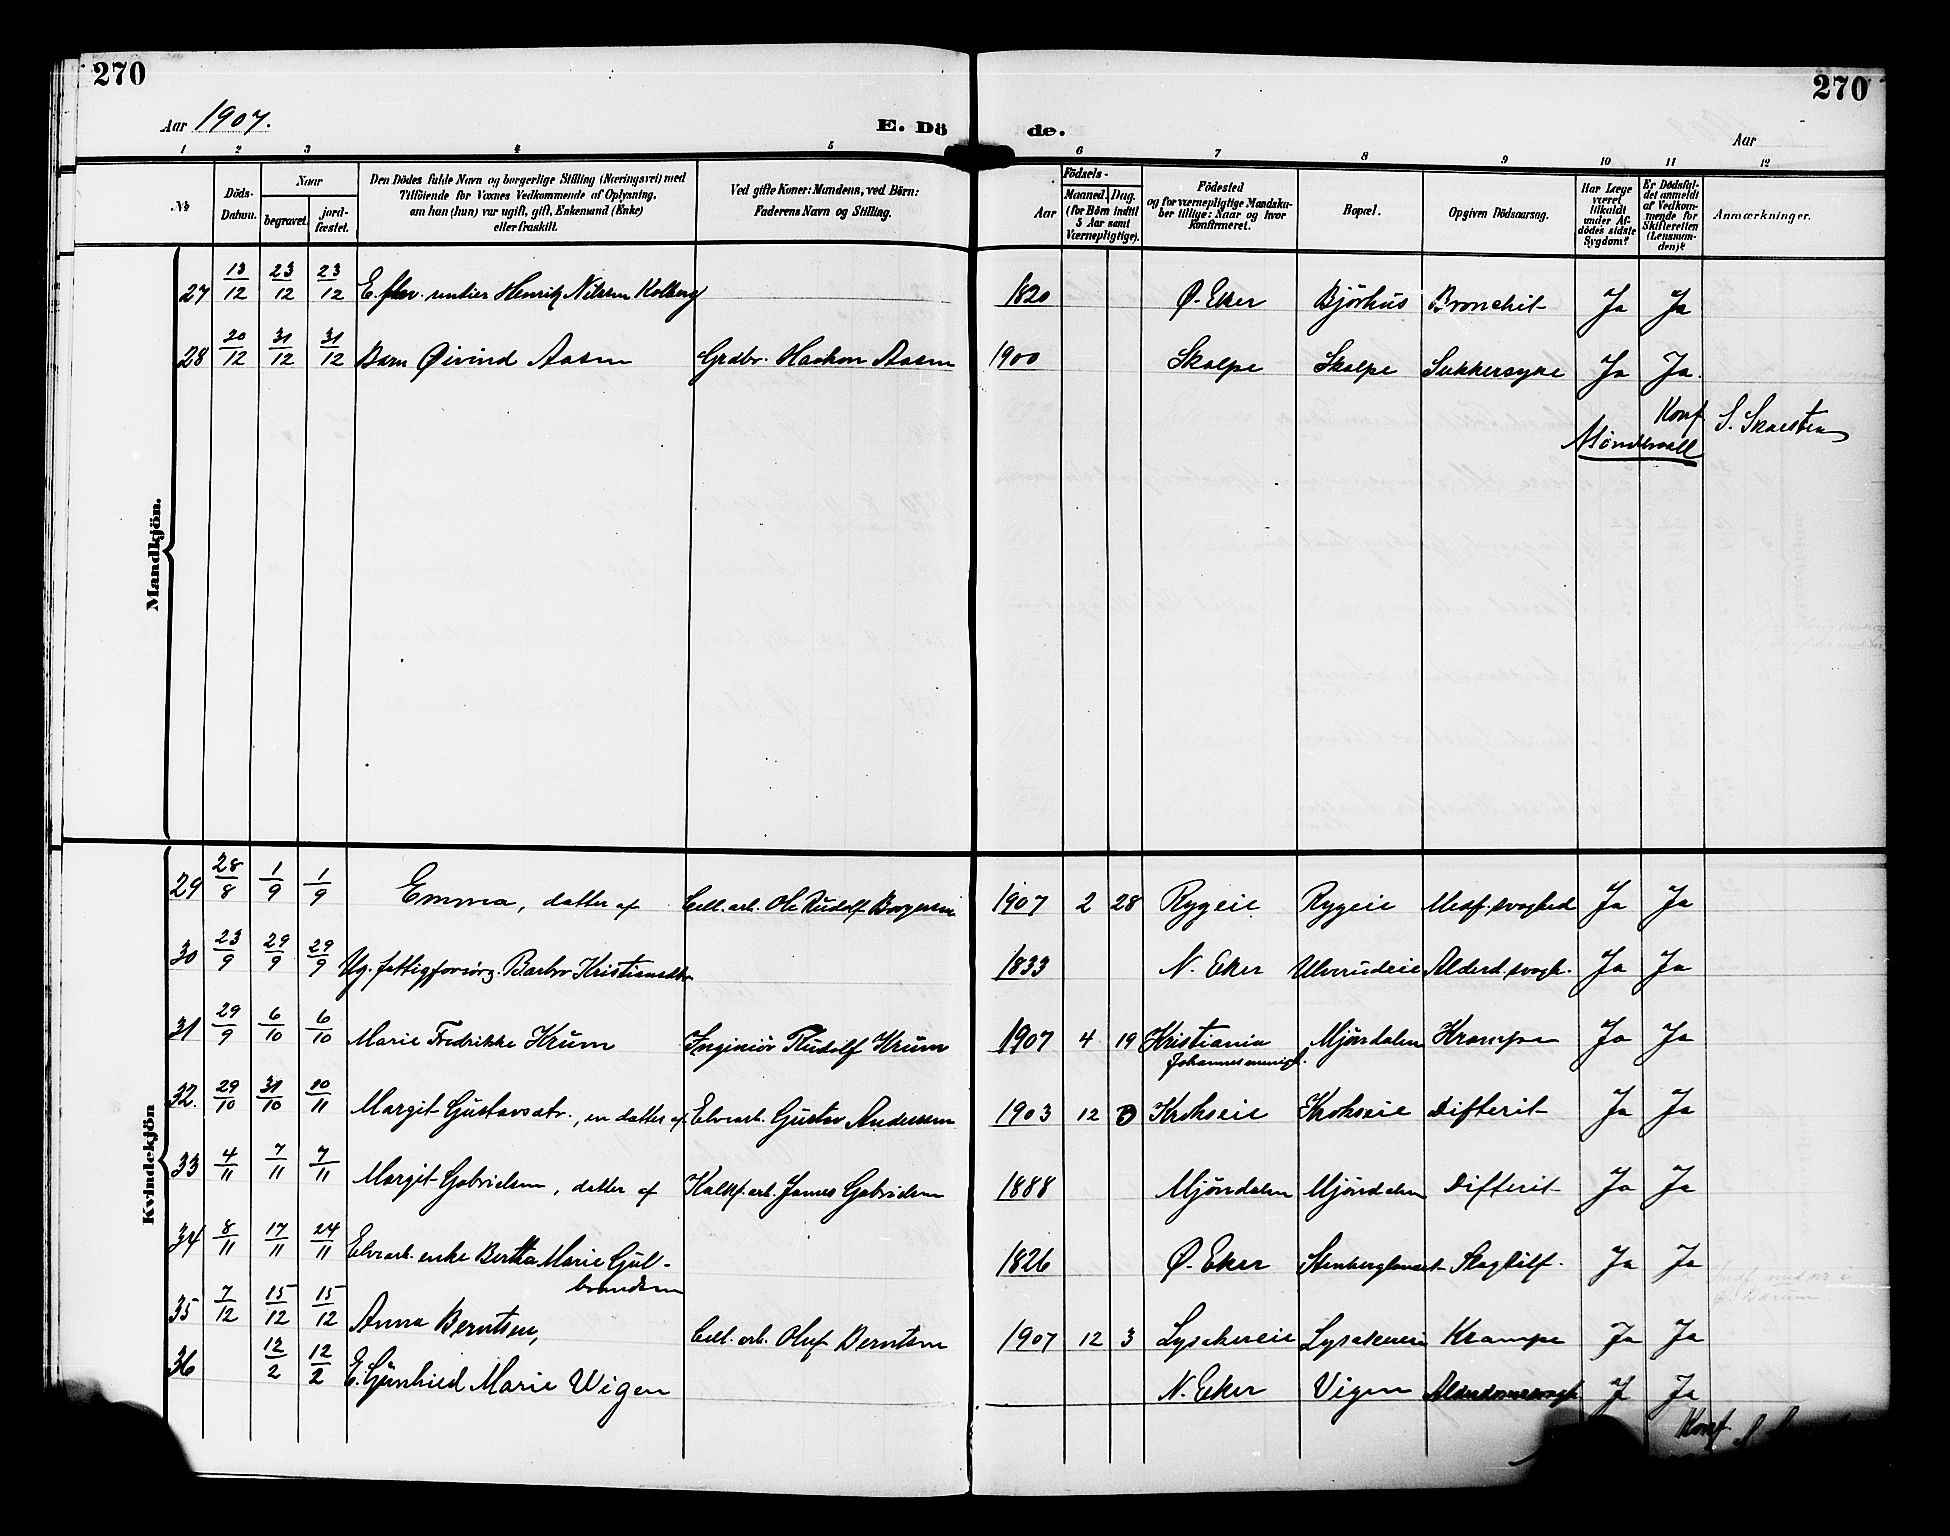 270
270
Aar 1907.
E. Dö
de.
Aar
1 2 3 4 5 6 7 8 9 10 11 12
№
Döds-Datum.
Naar
begravet.
jordfæstet.
Den Dödes fulde Navn og borgerlige Stilling (Næringsvei) med
Tilföiende for Voxnes Vedkommende af Oplysning,
om han (hun) var ugift, gift, Enkemand (Enke)
eller fraskilt.
Ved gifte Koner: Mandens, ved Börn:
Faderens Navn og Stilling.
Födsels-
Aar
Maaned. Dag.
(for Börn indtil
5 Aar samt
Værnepligtige).
Födested
og for værnepligtige Mandska-
ber tillige: Naar og hvor
konfirmeret.
Bopæl.
Opgiven Dödsaarsag.
Har Læge
været
tilkaldt
under Af-
dödes sidste
Sygdom?
Er Dödsfal-
det anmeldt
af Vedkom-
mende for
Skifteretten
(Lensman-
den)?
Anmærkninger.
Mandkjön.
27 13/12 23/12 23/12 E. fhv. rentier Henrik Nilssen Kolberg 1820 Ø. Eker Bjørhus Bronchit Ja Ja
28 20/12 31/12 31/12 Barn Øivind Aasen Grdbr. Haakon Aasen 1900 Skalpe Skalpe Sukkersyke Ja Ja.
Konf.
Kvindekjön
29 28/8 1/9 1/9 Emma, datter af Cell. arb. Ole Rudolf Borgersen 1907 2 28 Rygeie Rygeie Medf. svaghed Ja Ja
30 23/9 29/9 29/9 Ug. fattigforsörg. Barbro Kristiansdtr 1833 N. Eker Ulverudeie Alderd. svagh. Ja Ja
31 29/9 6/10 6/10 Marie Fredrikke Krum Ingeniör Rudolf Krum 1907 4 19 Kristiania Mjöndalen Krampe Ja Ja
Johannes menigh.
32. 29/10 31/10 10/11 Margit Gustavsdtr., en datter af Elvearb. Gustav Andersen 1903 12 Krokseie Krokseie Difterit Ja Ja
33 4/11 7/11 7/11 Margit Gabrielsen, datter af Kalkf. arb. James Gabrielsen 1888 Mjöndalen Mjöndalen Difterit Ja Ja
34 8/11 17/11 24/11 Elvearb. enke Bertha Marie Gul-
brandsen 1826 Ø. Eker Slagtilf. Ja Ja
35 7/12 15/12 15/12 Anna Berntsen, Cell. arb. Oluf Berntsen 1907 12 3 Lysakereie Lysakereie Krampe Ja Ja
36 12/2 12/2 E. Gunhild Marie Wigen N. Eker Vigen Alderdomssvagh. J Ja
Konf.